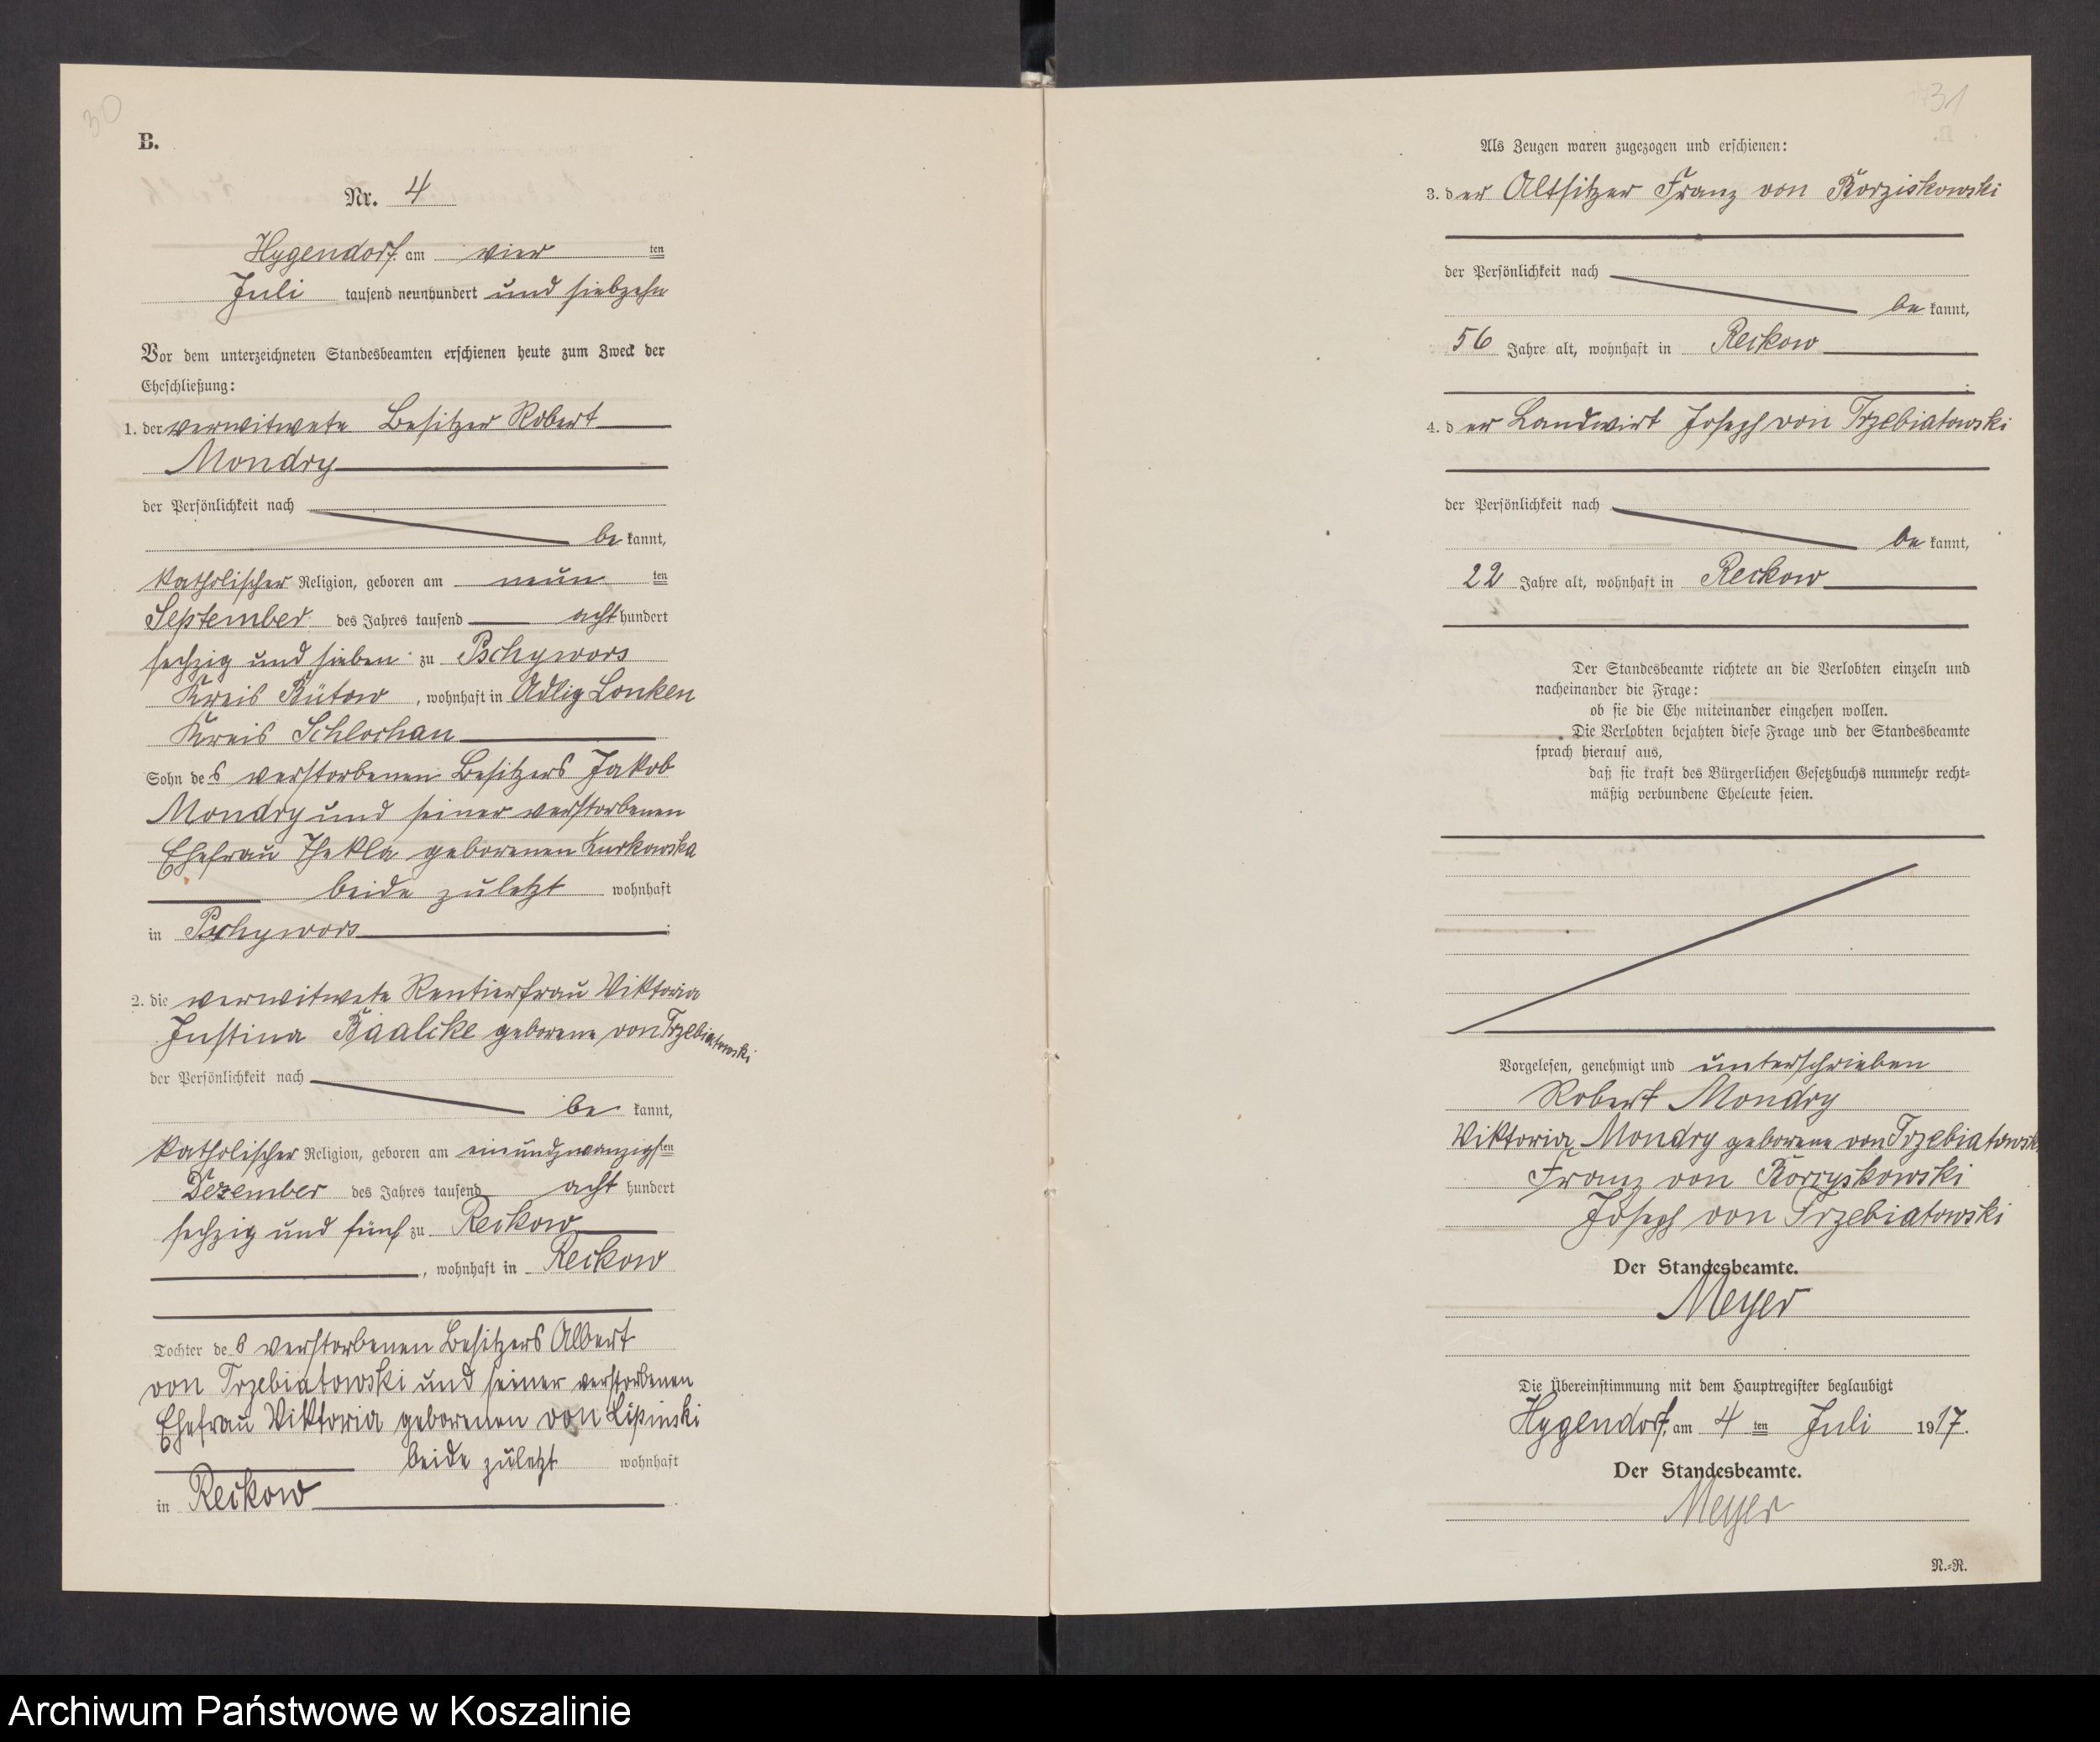 30
B.
Nr. 4
Hygendorf am vier ten
Juli tausend neunhundert und siebzehn
Vor dem unterzeichneten Standesbeamten erschienen heute zum Zweck der
Eheschließung:
1. der verwitwete Besitzer Robert
Mondry
der Persönlichkeit nach
be kannt,
katholischer Religion, geboren am neun ten
September des Jahres tausend acht hundert
sechzig und sieben zu Pschywors
Kreis Bütow , wohnhaft in Adlig Lonken
Kreis Schlochau
Sohn des verstorbenen Besitzers Jakob
Mondry und seiner verstorbenen
Ehefrau Thekla geborenen Kurkowska
beide zuletzt wohnhaft
in Pschywors ;
2. die verwitwete Rentierfrau Viktoria
Justina Baalcke geborene von Trzebiatowski
der Persönlichkeit nach
be kannt,
katholischer Religion, geboren am einundzwanzigsten
Dezember des Jahres tausend acht hundert
sechzig und fünf zu Reckow
, wohnhaft in Reckow
Tochter des verstorbenen Besitzers Albert
von Trzebiatowski und seiner verstorbenen
Ehefrau Viktoria geborenen von Lipinski
beide zuletzt wohnhaft
in Reckow .
31
Als Zeugen waren zugezogen und erschienen:
3. der Altsitzer Franz von Borziskowski
der Persönlichkeit nach
be kannt,
56 Jahre alt, wohnhaft in Reckow
;
4. der Landwirt Joseph von Trzebiatowski
der Persönlichkeit nach
be kannt,
22 Jahre alt, wohnhaft in Reckow
Der Standesbeamte richtete an die Verlobten einzeln und
nacheinander die Frage:
ob sie die Ehe miteinander eingehen wollen.
Die Verlobten bejahten diese Frage und der Standesbeamte
sprach hierauf aus,
daß sie kraft des Bürgerlichen Gesetzbuchs nunmehr recht-
mäßig verbundene Eheleute seien.
Vorgelesen, genehmigt und unterschrieben
Robert Mondry
Viktoria Mondry geborene von Trzebiatowski
Franz von Borzyskowski
Joseph von Trzebiatowski
Der Standesbeamte.
Meyer
Die Übereinstimmung mit dem Hauptregister beglaubigt
Hygendorf, am 4 ten Juli 1917.
Der Standesbeamte.
Meyer
N.-R.
Archiwum Państwowe w Koszalinie